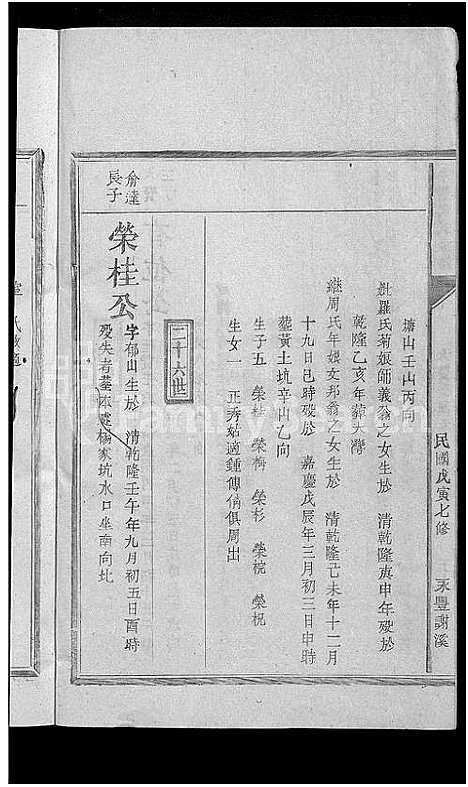 民國戊寅七修
永豐謝溪
塘山壬山丙向
妣羅氏菊娘師義翁之女生於 清乾隆庚申年歿於
乾隆乙亥年葬大灣
繼周氏年娘文邦翁之女生於 清乾隆己未年十二月
十九日巳時歿於 嘉慶戊辰年三月初三日申時
葬黃土坑辛山乙向
生子五 榮桂 榮梅 榮杉 榮梡 榮柷
生女一 正秀姑適鍾傳倘俱周出
二十六世
俞達
長子
榮桂公
字郁山生於 清乾隆壬午年九月初五日酉時
歿失考葬本處楊家坑水口坐南向北